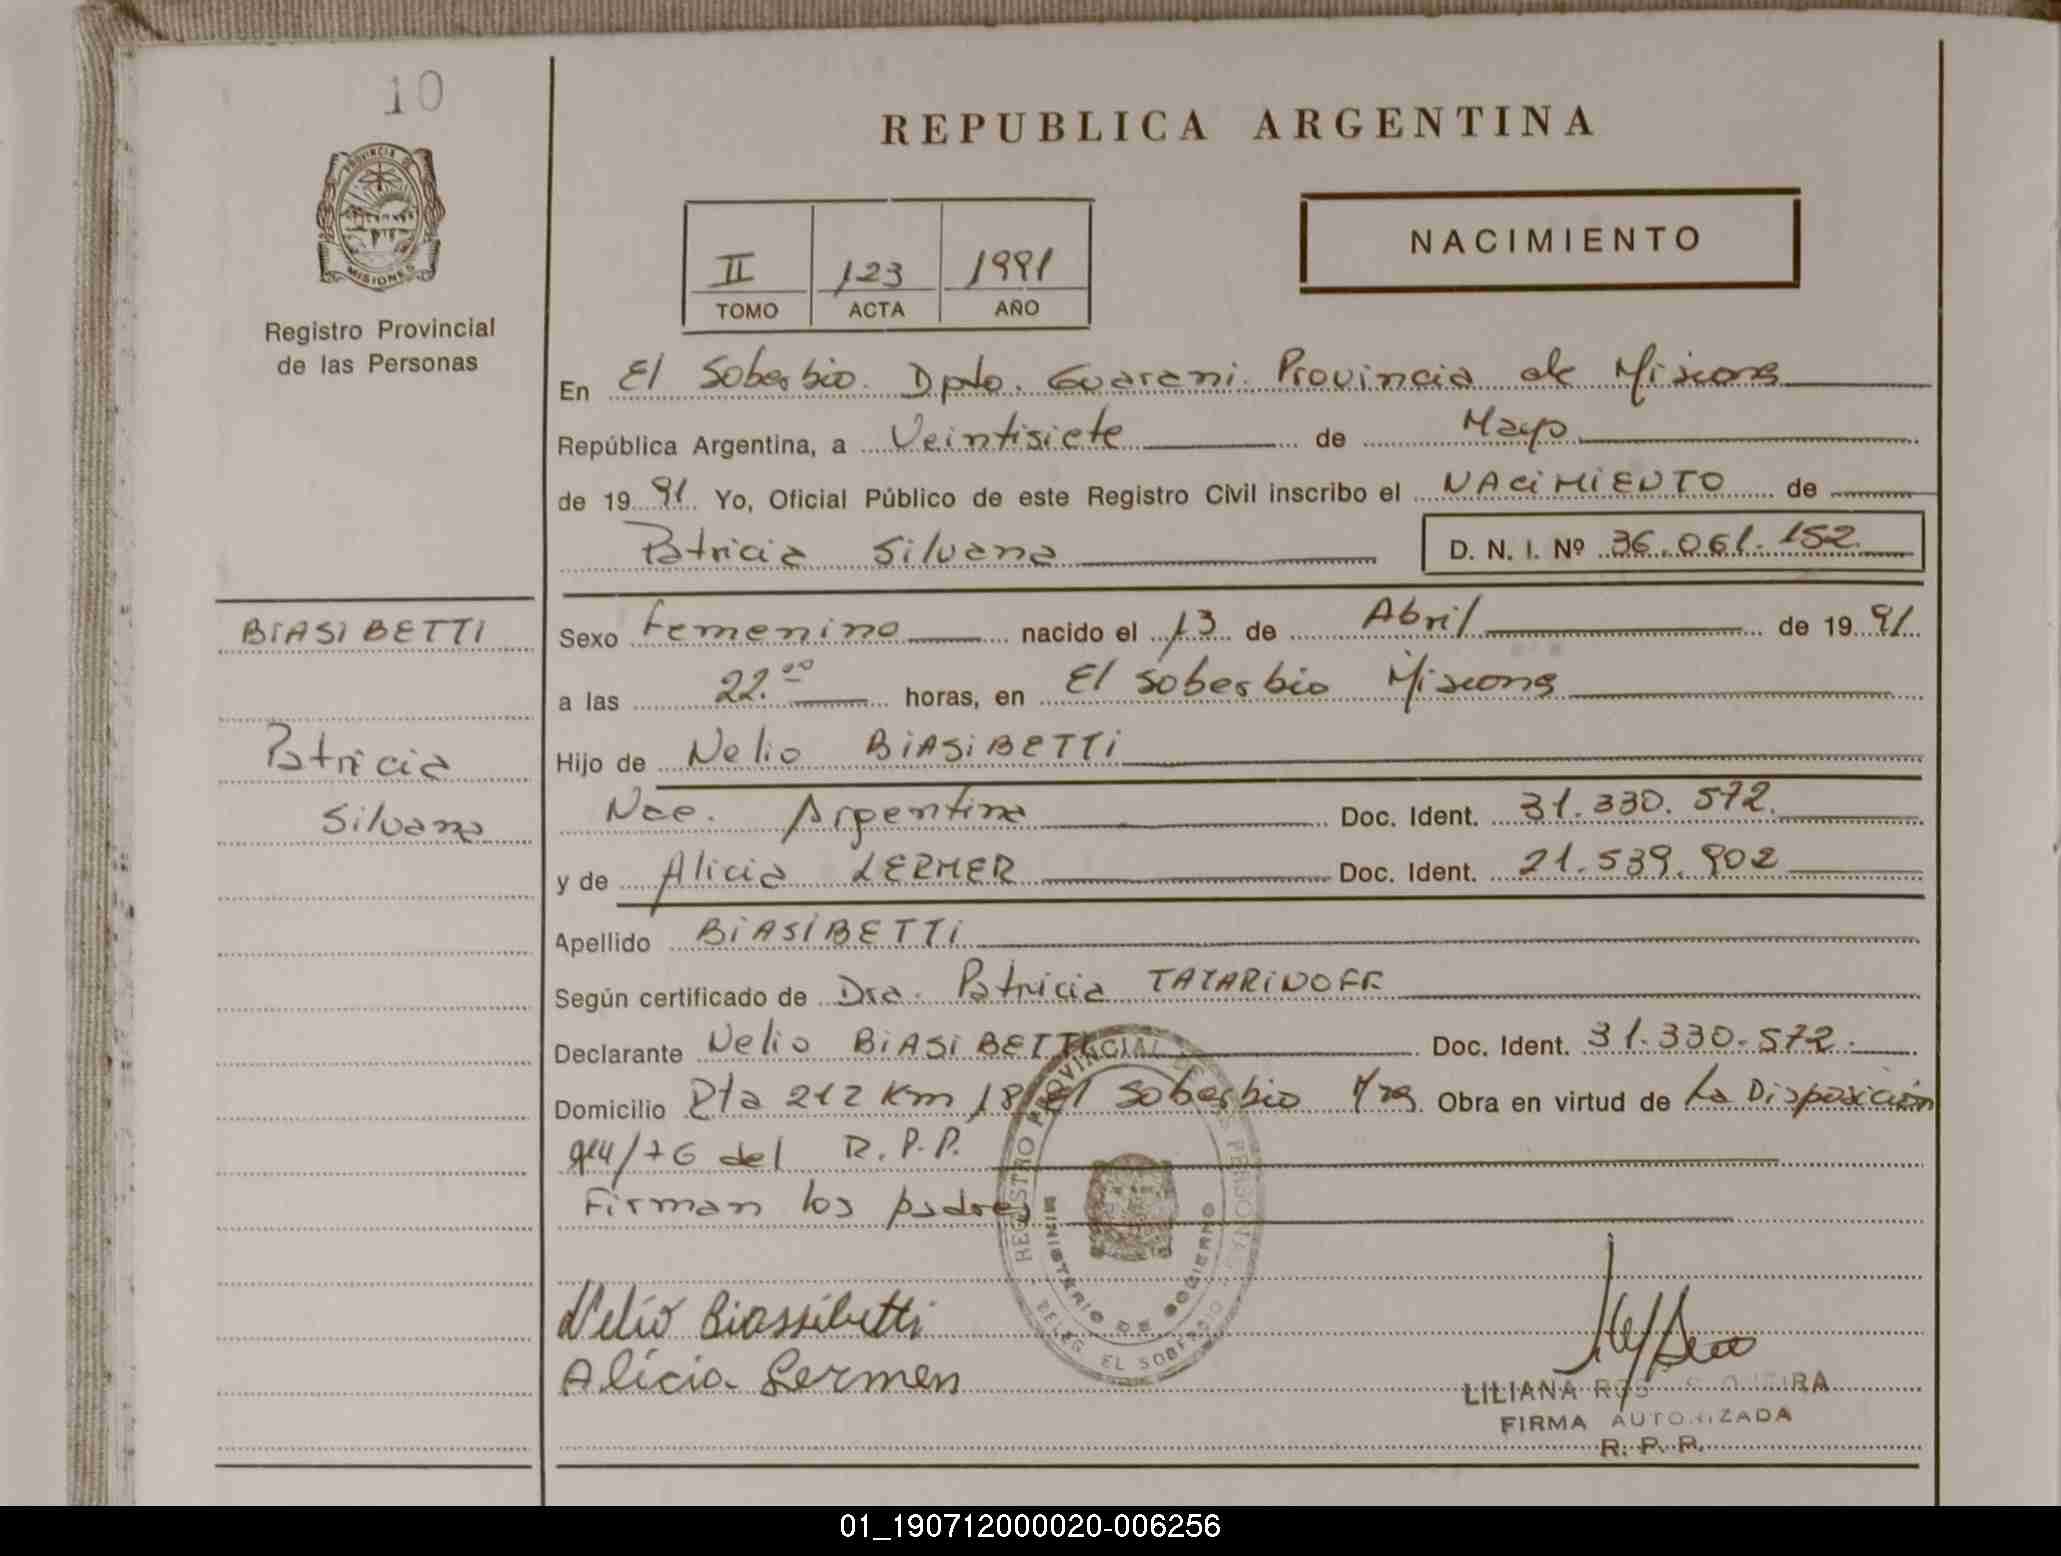 10
REPUBLICA ARGENTINA
PROVINCIA DE
MISIONES
Registro Provincial
de las Personas
II 123 1991
TOMO ACTA AÑO
NACIMIENTO
En El Soberbio. Dpto. Guarani. Provincia de Misiones
República Argentina, a Veintisiete de Mayo
de 19 91. Yo, Oficial Público de este Registro Civil inscribo el NACIMIENTO de
Patricia Silvana D. N. I. Nº 36.061.152
BIASIBETTI
Patricia
Silvana
Sexo Femenino nacido el 13 de Abril de 19 91.
a las 22.00 horas, en El Soberbio Misiones
Hijo de Nelio BIASIBETTI
Nac. Argentina Doc. Ident. 31.330.572.
y de Alicia LERMER Doc. Ident. 21.539.902
Apellido BIASIBETTI
Según certificado de Dra. Patricia TATARINOFF
Declarante Nelio BIASIBETTI Doc. Ident. 31.330.572.
Domicilio Rta 212 Km 18 El Soberbio Mns. Obra en virtud de La Disposición
/76 del R.P.P.
Firman los padres
REGISTRO PROVINCIAL DE LAS PERSONAS
MINISTERIO DE GOBIERNO
DELEG. EL SOBERBIO
Nelio Biassibetti
Alicia Lermen
LILIANA
FIRMA AUTORIZADA
R. P. P.
01_190712000020-006256